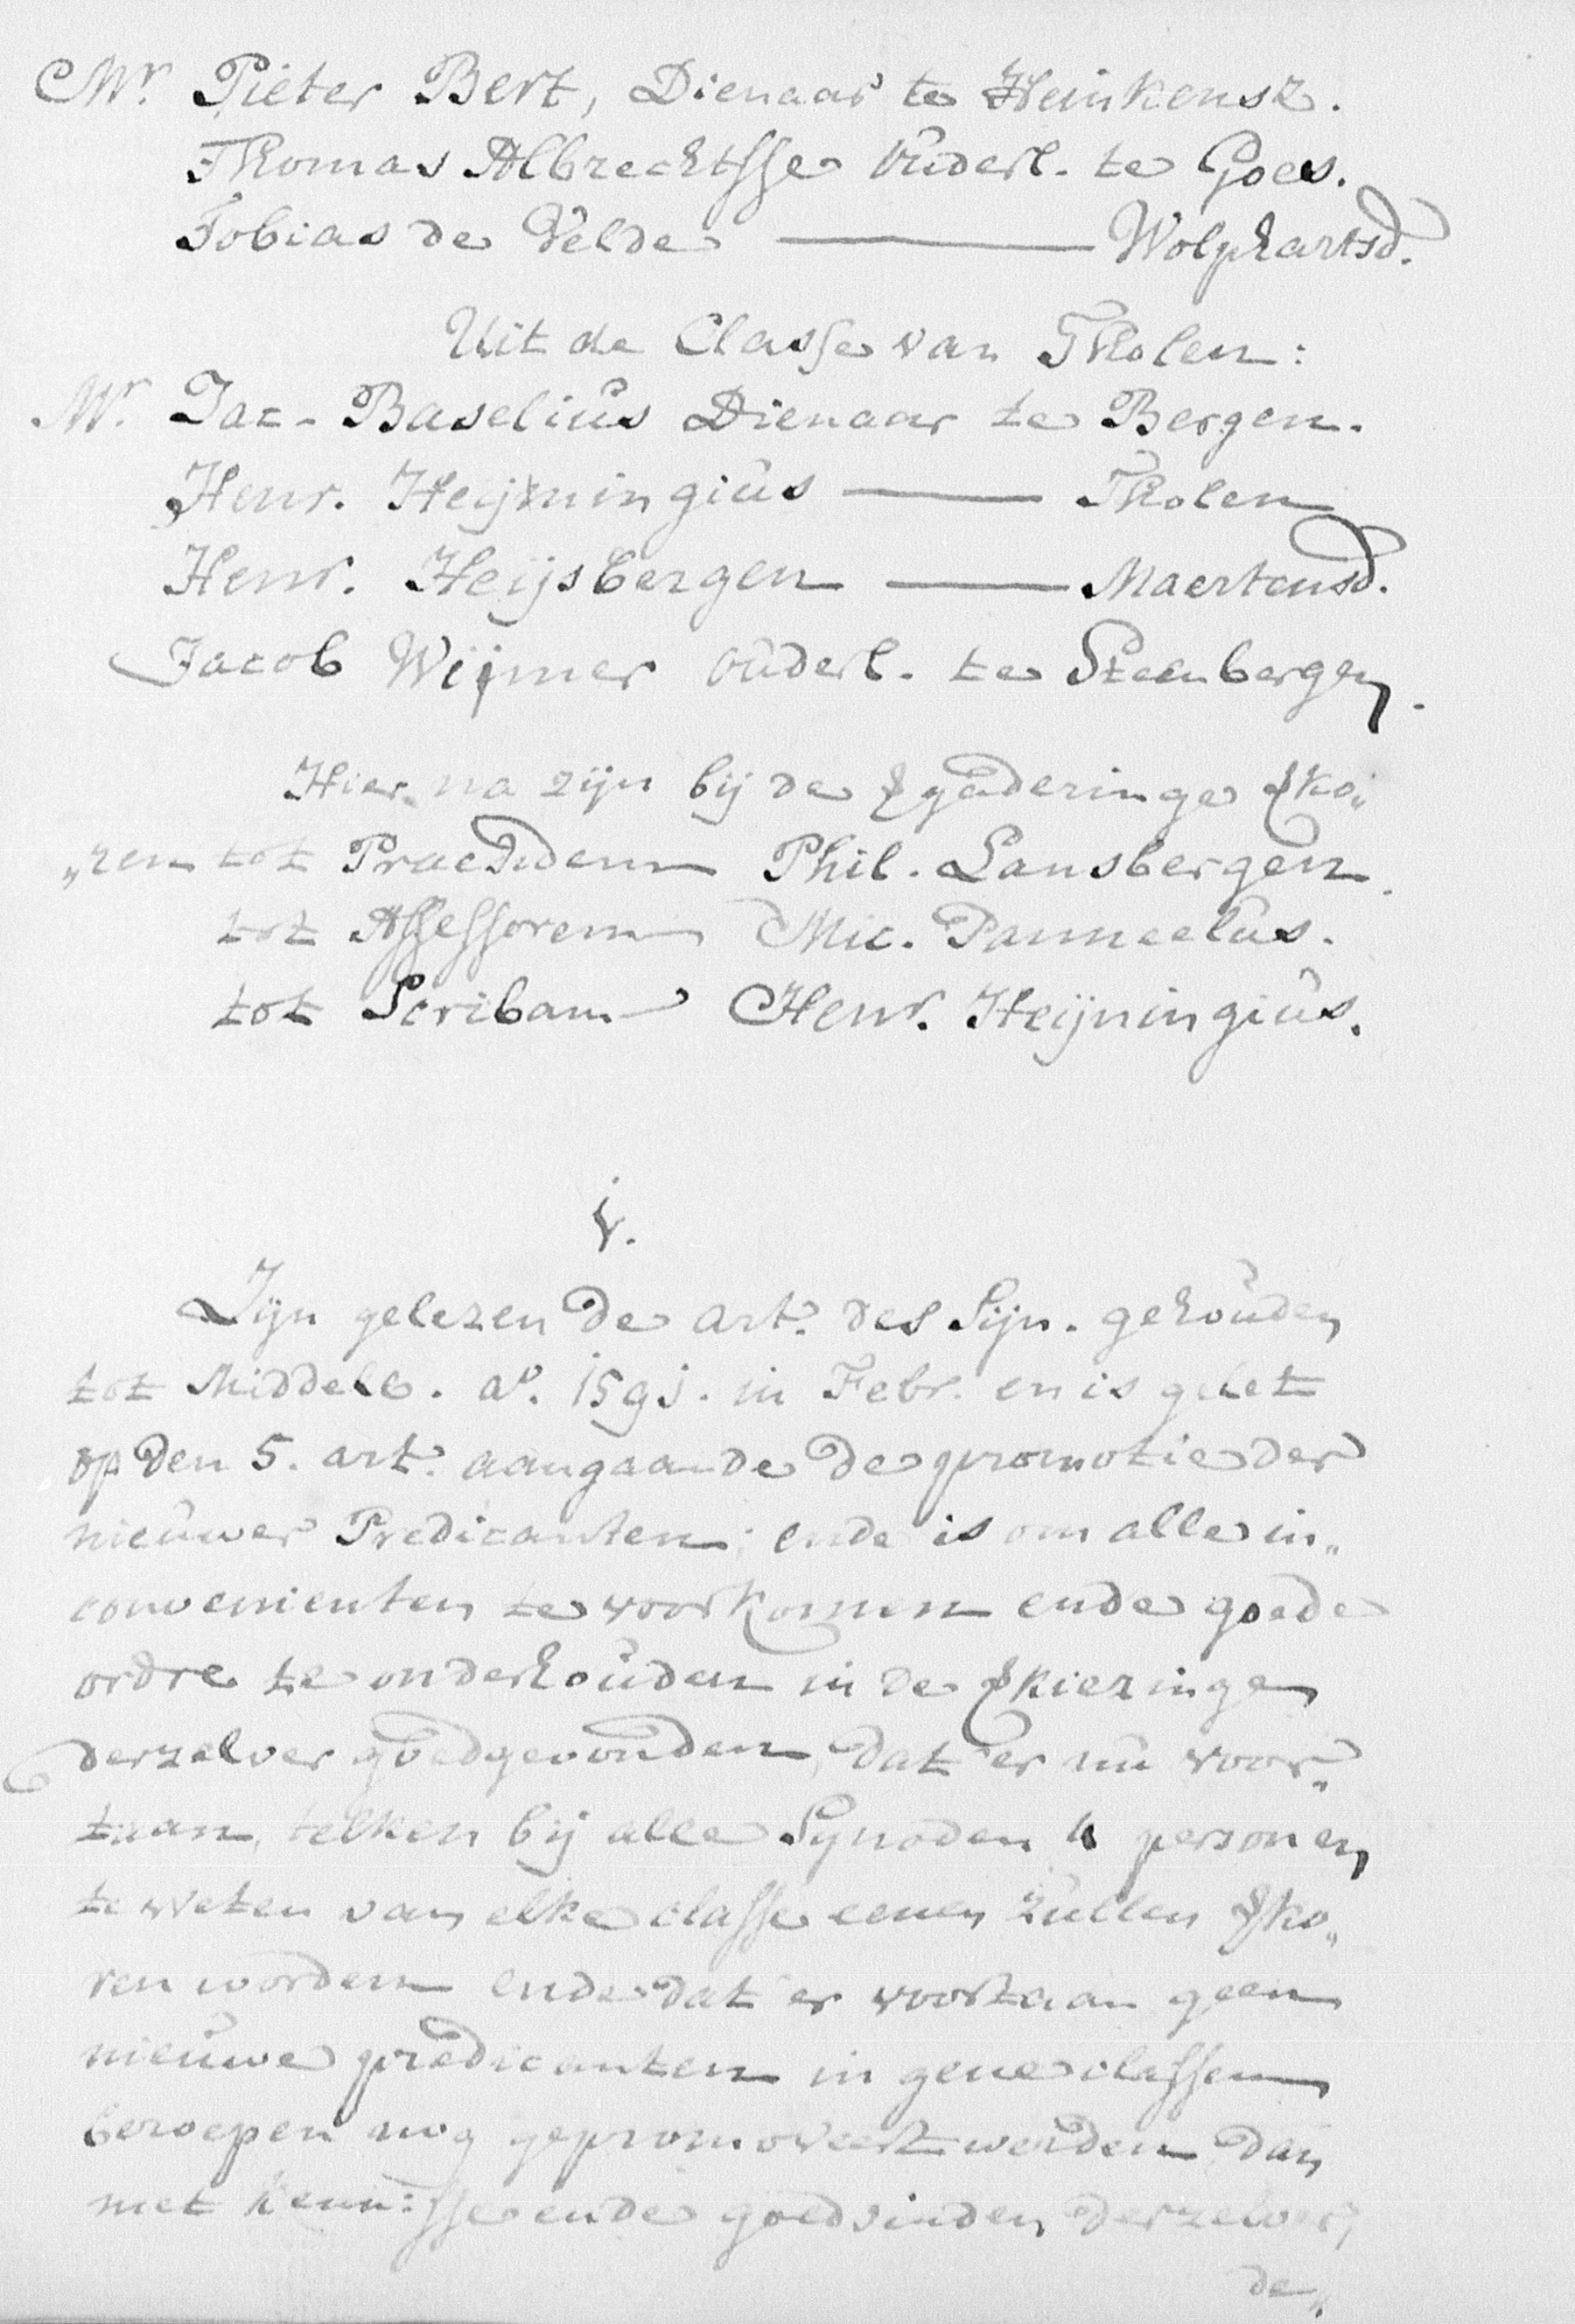 Mr. Pieter Bert, Dienaar te Heinkensz.
Thomas Albrechtsse Ouderl. te Goes.
Tobias de Velde ——— Wolphartsd.
Uit de Classe van Tholen:
Mr. Jac. Baselius Dienaar te Bergen.
Henr. Heijningius —— Tholen
Henr. Heijsbergen —— Maertensd.
Jacob Wijmer Ouderl. te Steenbergen.
Hier na zijn bij de vgaderinge vko„
„ren tot Praesidem Phil. Lansbergen.
tot Assessorem Mic. Panneelus.
tot Scribam Henr. Heijningius.
Zijn gelezen de art. des Sijn. gehouden
tot Middelb. ao. 1591. in Febr. en is gelet
op den 5. art. aangaande de promotie der
nieuwer Predicanten; ende is om alle in„
convenienten te voorkomen ende goede
ordre te onderhouden in de vkiezinge
derzelver goedgevonden, dat er nu voor„
taan, telken bij alle Synoden 4 personen
te weten van elke classe eenen zullen vko„
ren worden ende dat er voortaan geen
nieuwe predicanten in gene classen
beroepen nog gepromoveert werden, dan
met kennisse ende goedvinden derzelver,
de„